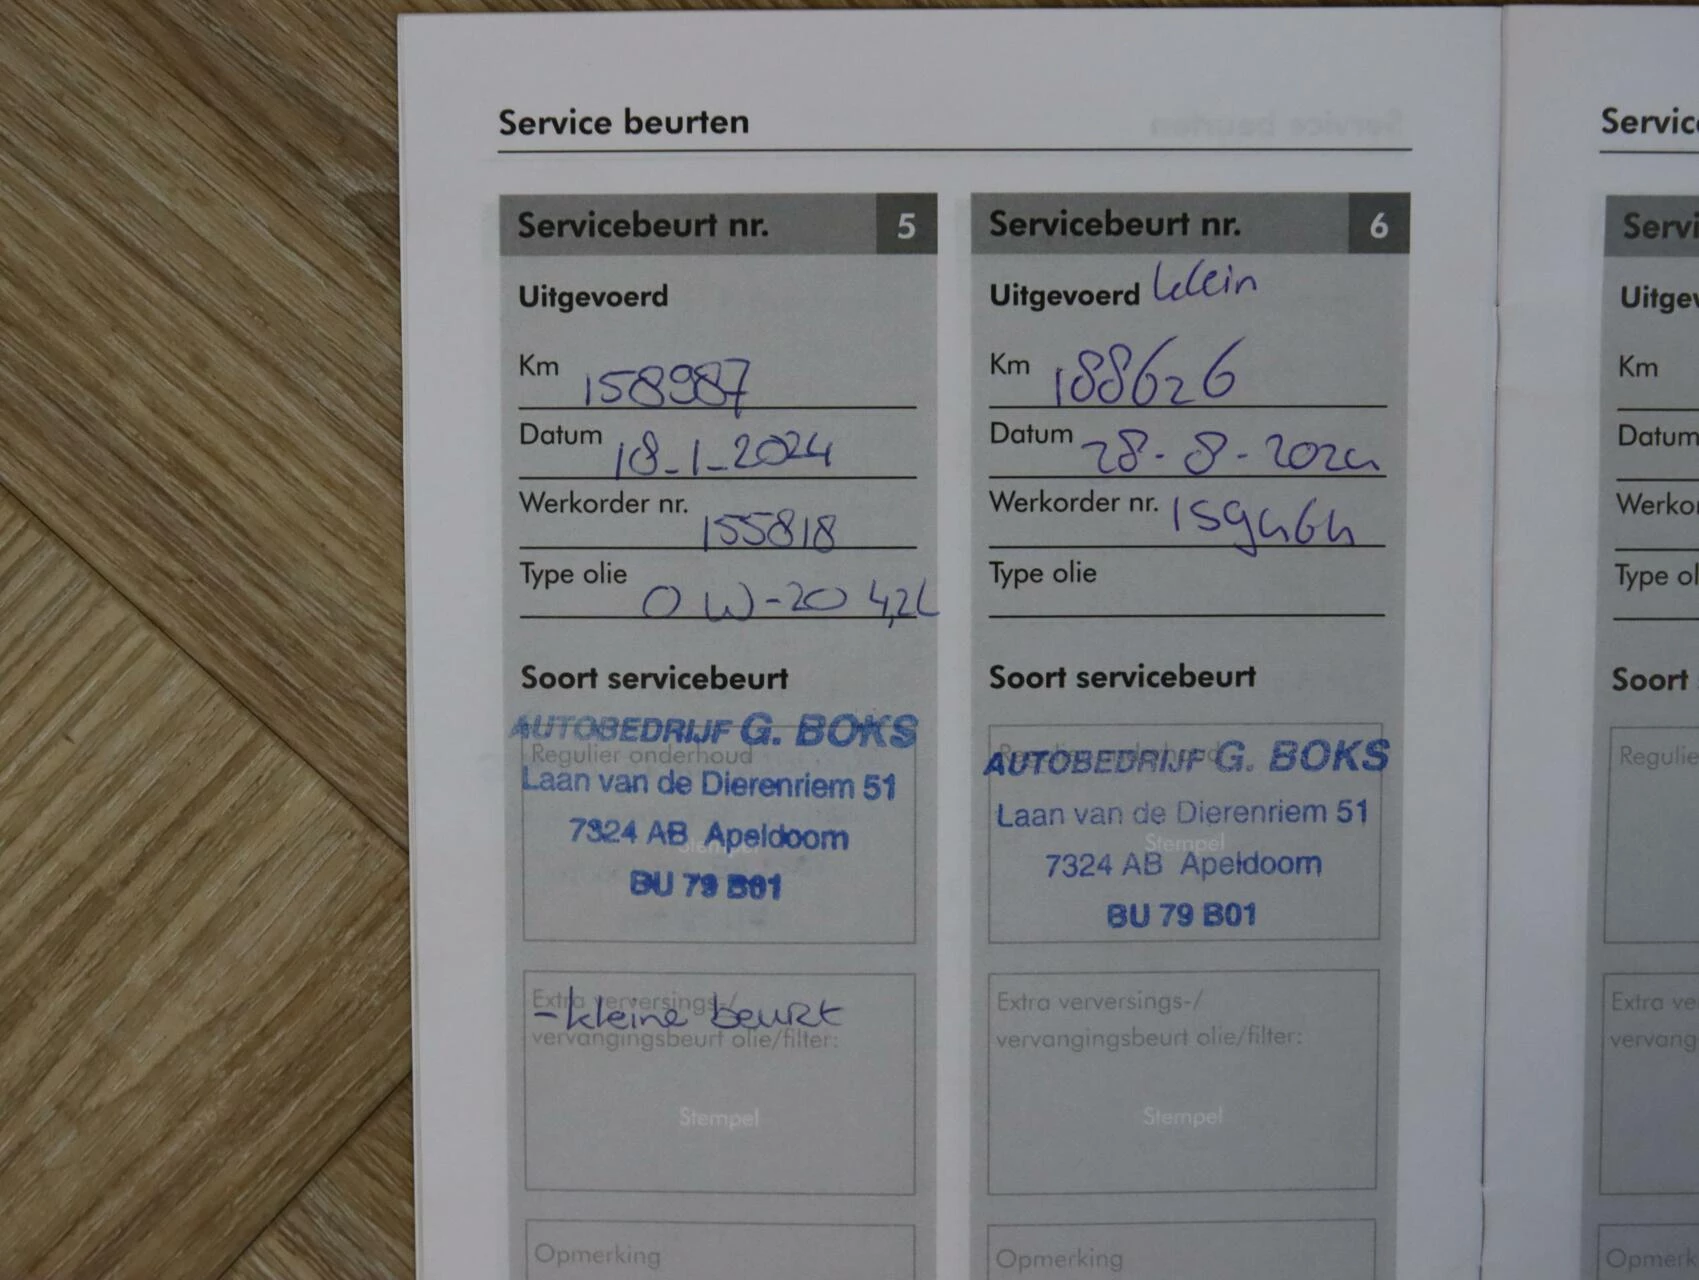 Service beurten
Servicebeurt nr. 5
Uitgevoerd
Km 158987
Datum 18-1-2024
Werkorder nr. 155818
Type olie 0W-20 4,2L
Soort servicebeurt
AUTOBEDRIJF G. BOKS
Regulier onderhoud
Laan van de Dierenriem 51
7324 AB Apeldoorn
Stempel
BU 79 B01
Extra verversings-/
-kleine beurt
vervangingsbeurt olie/filter:
Stempel
Opmerking
Servicebeurt nr. 6
Uitgevoerd klein
Km 188626
Datum 28-8-2024
Werkorder nr. 159464
Type olie
Soort servicebeurt
Regulier onderhoud
AUTOBEDRIJF G. BOKS
Laan van de Dierenriem 51
Stempel
7324 AB Apeldoorn
BU 79 B01
Extra verversings-/
vervangingsbeurt olie/filter:
Stempel
Opmerking
Servic
Servi
Uitgev
Km
Datum
Werkor
Type ol
Soort
Regulie
Extra ve
vervang
Opmerk